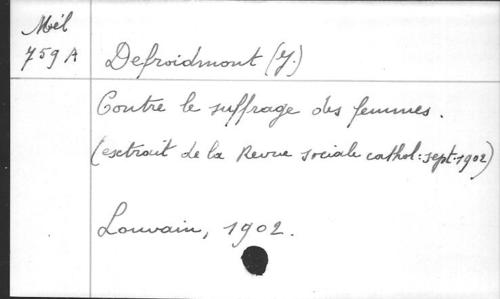 Mél
759 A
Defroidmont (J.)
Contre le suffrage des femmes.
(extrait de la Revue sociale cathol: sept. 1902)
Louvain, 1902.